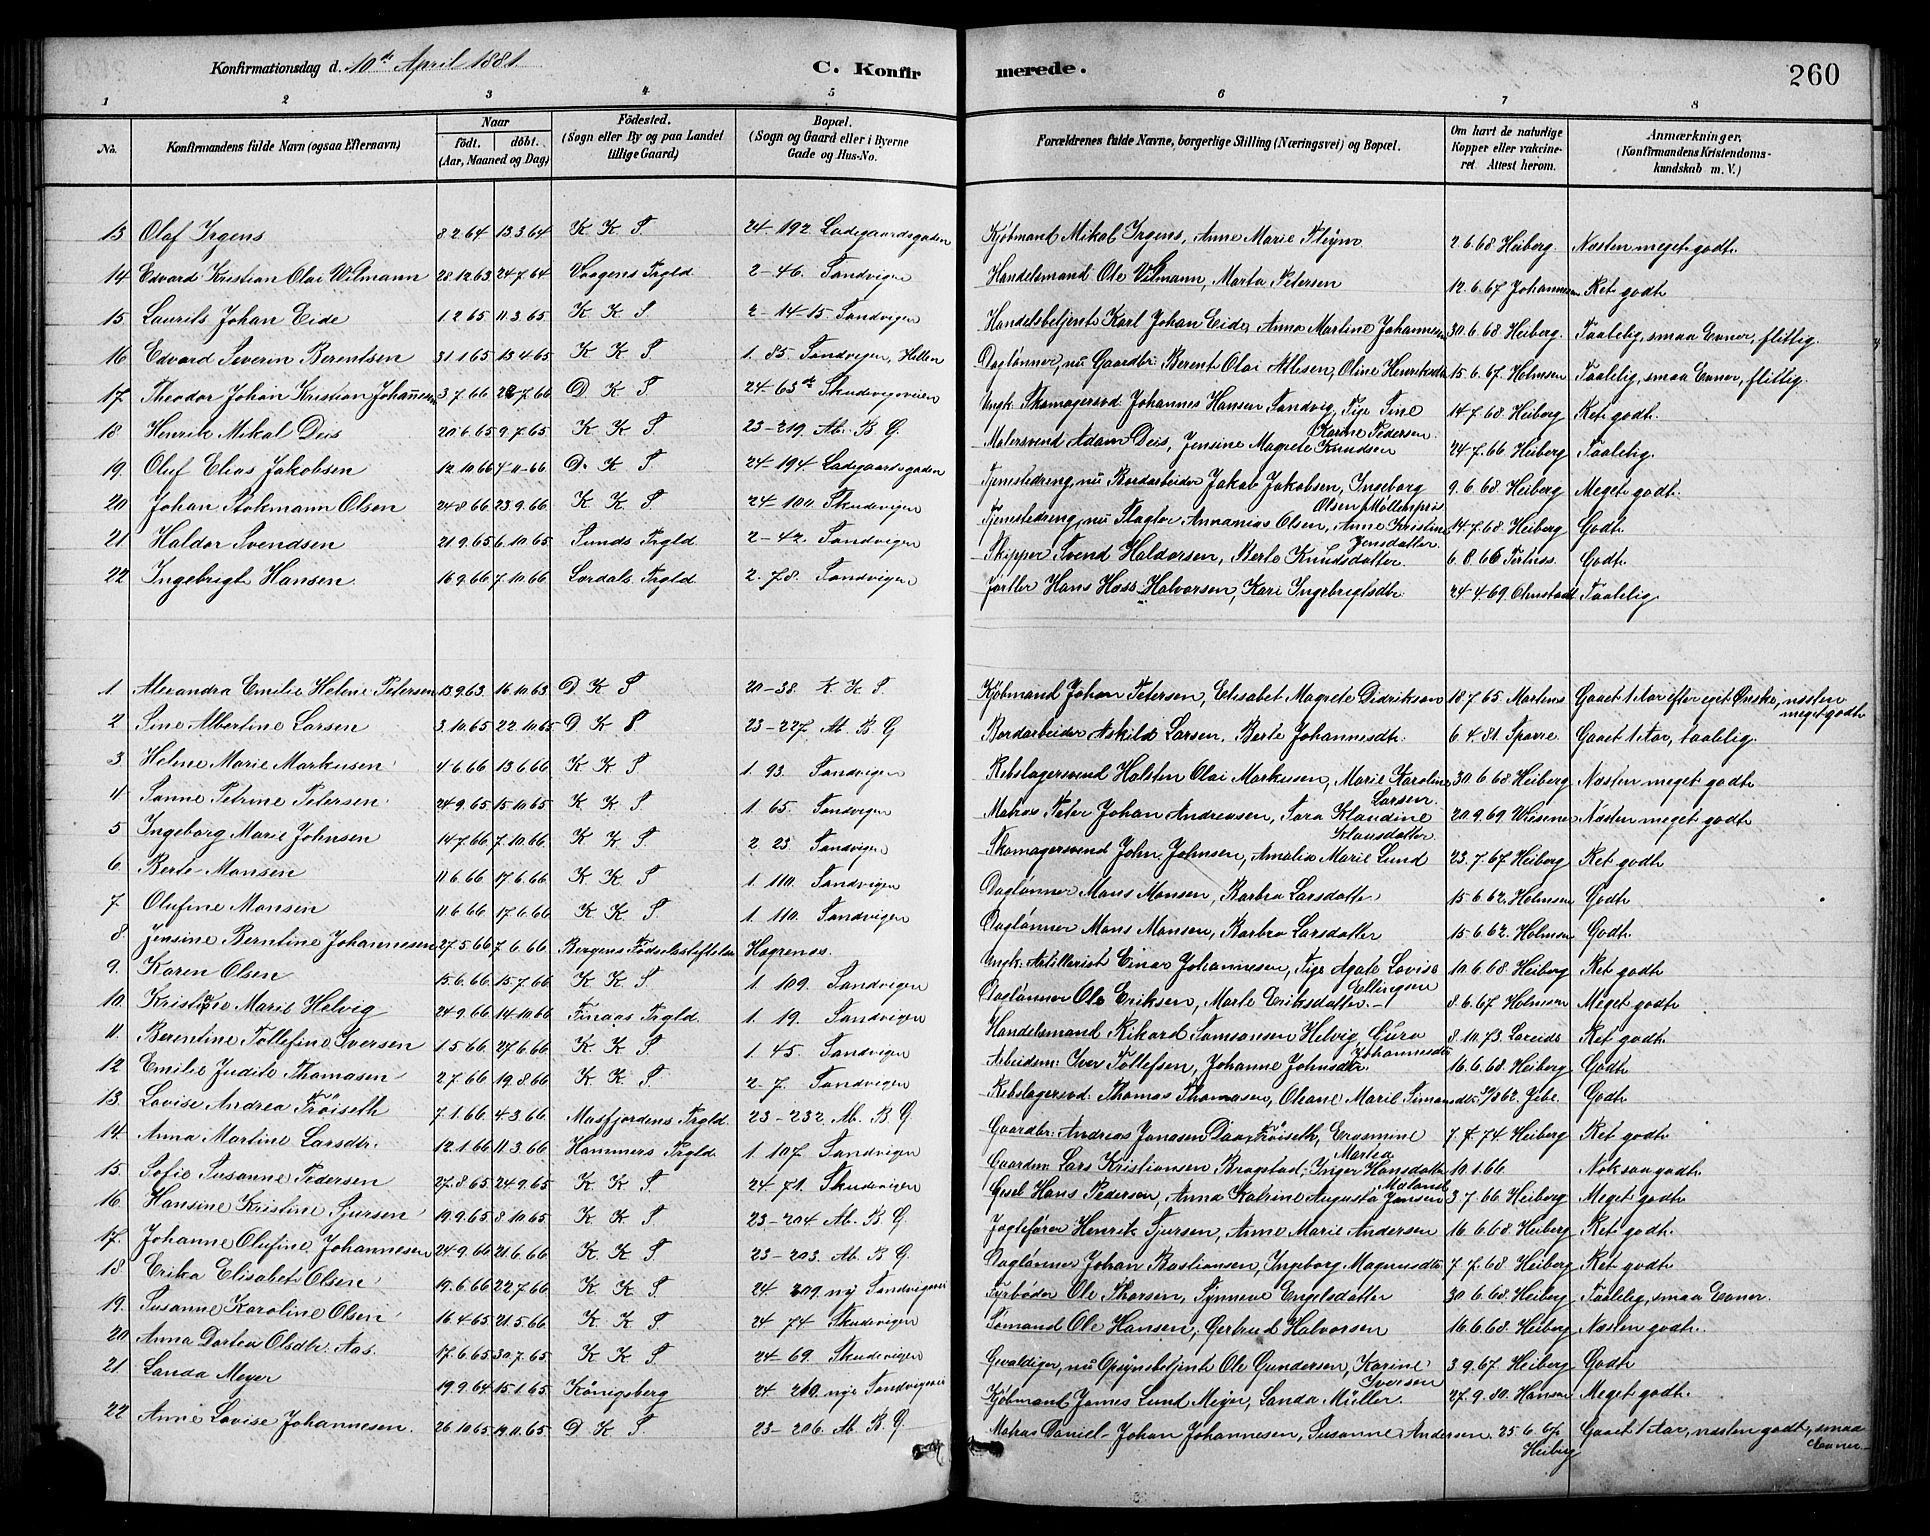 Konfirmationsdag d. 10de April 1881
C. Konfirmerede.
260
1 2 3 4 5 6 7 8
No.
Konfirmandens fulde Navn (ogsaa Efternavn)
Naar
födt. döbt.
(Aar, Maaned og Dag)
Födested.
(Sogn eller By og paa Landet
tillige Gaard)
Bopæl.
(Sogn og Gaard eller i Byerne
Gade og Hus-No.
Forældrenes fulde Navne, borgerlige Stilling (Næringsvei) og Bopæl.
Om havt de naturlige
Kopper eller vakcine-
ret Attest herom.
Anmærkninger.
(Konfirmandens Kristendoms-
kundskab m. V.)
13 Olaf Irgens 8 2 64 13 3 64 K K S. 24-192 Ladegaardsgaden Kjøbmand Mikal Irgens, Anne Marie Fleÿm 2.6.68 Heiberg. Næsten meget godt.
14 Edvard Kristian Olai Wilmann 28 12 63 24 7 64 Vaagens Prgld 2-46. Sandvigen Handelsmand Ole Vilmann, Marta Petersen 12.6.67 Johannesen Ret godt
15 Laurits Johan Eide 1 2 65 11 3 65 K K S 2-14-15 Sandvigen Handelsbetjent Karl Johan Eide, Anne Martine Johannesen 30.6.68 Heiberg. Taalelig, smaa Evner, flittig.
16 Edvard Severin Berentsen 31 1 65 13 4 65 K K S 1. 85. Sandvigen, Hellen Daglønner, nu Gaardbr. Berent Olai Nilsen, Oline Henriksdtr 15.6.67 Holmsen Taalelig, smaa Evner, flittig.
17 Theodor Johan Kristian Johannesen 3 7 66 26 7 66 D. K S 24-63 Skudevigsveien Ungk. Skomagersvd. Johannes Hansen Sandvig, Pige Sine Karine Pedersen 14.7.68. Heiberg Ret godt.
18 Henrik Mikal Deis 20 6 65 9 7 65 K K S 23-219. Ab. B G. Malersvend Adam Deis, Jensine Magrete Knudsen 24.7.66 Heiberg Taalelig.
19 Oluf Elias Jakobsen 12 10 66 4 11 66 D. K S 24-194 Ladegaardsgaden Tjenestedreng, nu Bordarbeider Jakob Jakobsen, Ingeborg Olsen Møllenpris 9.6.68. Heiberg Meget godt.
20 Johan Stokmann Olsen 24 8 66 23 9 66 K K S 24-100. Skudevigen Tjenestedreng, nu Slagter Annanias Olsen, Anne Kristine Jensdatter 14.7.68. Heiberg Godt.
21 Haldor Svendsen 21 9 65 6 10 65 Sunds Prgld 2-42. Sandvigen Skipper Svend Haldorsen, Berte Knudsdatter 6.8.66 Godt.
22 Ingebrigt Hansen 16 9 66 7 10 66 Lærdals Prgld 2.78. Sandvigen Sørtler Hans Haas Halvorsen, Kari Ingebrigtsdtr 24.4.69. Olmstad Taalelig
1 Alexandra Emilie Helene Petersen 13 9 63. 16 10 63 D K S 20-38. K. K S. Kjøbmand Johan Petersen, Elisabet Magrete Didriksen 18.7.65. Martens Gaaet 1 Aar efter eget Ønske, næsten meget godt
2 Sine Albertine Larsen 3 10 65 22 10 65 D K S 23-227. Ab. B G Bordarbeider Askild Larsen, Berte Johannesdtr. 6.4.81. Sparre Gaaet 1 Aar, taalelig.
3 Helene Marie Markusen 4 6 66 13 6 66 K K S 1. 93. Sandvigen Rebslagersvend Halsten Olai Markussen, Marie Karoline Larsen 30.6.68 Heiberg Næsten meget godt
4 Sanne Petrine Petersen 24 9 65 15 10 65 K K S 1. 65. Sandvigen Matros Peter Johan Andreasen, Sara Klandine Klausdatter 20.9.69 Wiesener Næsten meget godt
5 Ingeborg Marie Johnsen 14 7 66 7 10 66 K K S 2 23. Sandvigen Skomagersvend John Johnsen, Amalie Marie Lund 23.7.67 Heiberg Ret godt
6 Berte Monsen 11 6 66 17 6 66 K K S 1. 110. Sandvigen Dagløner Mons Monsen, Barbra Larsdatter 15.6.62 Holmsen Godt
7 Olufine Monsen 11 6 66 17 6 66 K K S 1. 110. Sandvigen Dagløner Mons Monsen, Barbra Larsdatter 15.6.62. Holmsen Godt.
8. Jensine Berntine Johannesen 27 5 66 7 6 66 Bergens Födselsstiftelse Hagrenes. Ungk. Artillerist Einar Johannesen, Pige Agate Lovise Ellingsen 10.6.68. Heiberg Ret godt
9. Karen Olsen 15 6 66 15 7 66 K K S. 1 109. Sandvigen Dagløner Ole Eriksen, Marte Eriksdatter 8.6.67 Holmsen Meget godt
10. Kristine Marie Helvig 24 9 66 14 10 66 Finaas Prgld. 1. 19. Sandvigen Handelsmand Rikard Samsonsen Helvig, Guro Johannesdtr 8.10.73. Ret godt
11. Berentine Tollefine Iversen 1 5 66 27 6 66 K. K S 1. 45. Sandvigen Arbeidsm. Iver Tollefsen, Johanne Johnsdtr. 16.6.68. Heiberg Godt
12 Emilie Judite Thomasen 2 7 66 19 8 66 K K S. 2-7. Sandvigen Rebslagersvd. Thomas Thomasen, Oleane Marie Simonsdtr. Jibe. Godt
13. Lovise Andrea Fröiseth 7 1 66 4 3 66 Masfjordens Prgld. 23-232. Ab. B G Gaardbr. Andreas Jonasen Daae Fröiseth, Erasmine Martea 7.7.74 Heiberg Ret godt
14. Anna Martine Larsdtr. 12 1 66 11 3 66 Hammers Prgld. 1. 107 Sandvigen Gaardm. Lars Kristiansen Bragstad, Inger Hansdatter 10.1.66 Noksaa godt.
15. Sofie Susanne Pedersen 27 8 65 24 9 65 K K S. 24 71. Skudevigen Gesel Hans Pedersen, Anna Katrine Augusta Jensen 3 7.66 Heiberg Meget godt
16. Hansine Kristine Sjursen 19 9 65 8 10 65 K K S. 23-204 Ab. B G. Jagtefører Henrik Sjursen, Anne Marie Andersen 16.6.68 Heiberg Ret godt.
17. Johanne Olufine Johannesen 24 9 66 21 6 66 K K S. 23-203. Ab. B G. Dagløner Johan Bastiansen, Ingeborg Magnusdtr 7 7.68. Heiberg Ret godt
18 Erika Elisabet Olsen 19 6 66 22 7 66 K K S 24 209 ny Sandvigsvei Fyrbøder Ole Thorsen, Synneve Engelsdatter 30 6.68. Heiberg Taalelig, smaa Evner.
19. Susanne Karoline Olsen 16 4 65 21 5 66 K K S 24 74 Skudevigen Sømand Ole Hansen, Gertrud Halvorsen 16.6.68. Heiberg Næsten godt.
20 Anna Dortea Olsdtr. Aas. 17 6 65 30 7 65 K K S. 24-69. Skudevigen Gevaldiger, nu Opsynsbetjent Ole Gundersen, Karine Iversen 3.9.67. Heiberg Godt
21 Sanda Meyer 19 9 64 15 1 65 Königsberg 24 210 nye Sandvigsvei Kjøbmand James Lund Meyer, Sanda Müller. 27.9.80. Hansen Meget godt.
22 Anne Lovise Johannesen. 26 10 65 19 11 65 D K S. 23-206. Ab. B G. Matros Daniel Johan Johannesen, Susanne Andersen. 25.6.67 Heiberg Gaaet 1 Aar, næsten godt, smaa Evner